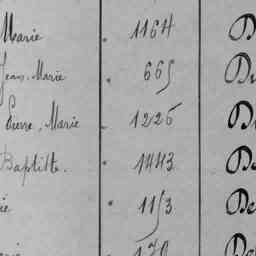 Marie . 1164 D
Jean-Marie . 665 Du
Pierre, Marie . 1226 Du
Baptiste. . 1443 De
ie . 1153 De
. 170 De